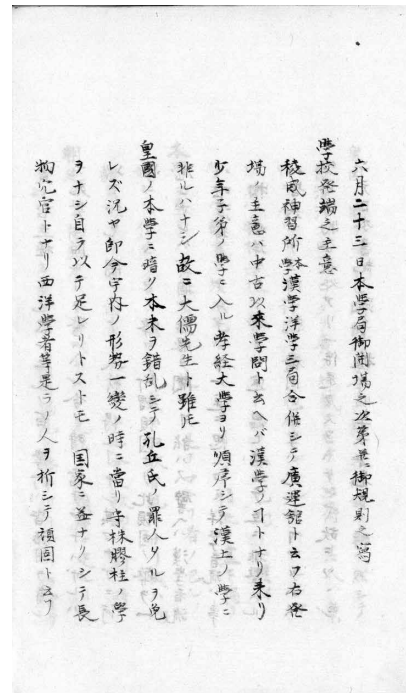 六月二十三日本學局御開場之次第並ニ御規則之寫
學校発端之主意
稜威神習所本學漢學洋学三局合併シテ廣運館ト云フ右発
場ノ主意ハ中古以来学問ト云ヘバ漢學ノコトナリ来リ
少年子弟ノ學ニ入ル孝経大學ヨリ順序シテ漢土ノ學ニ
非ルハナシ故ニ大儒先生ト雖𪜈
皇國ノ本學ニ暗ク本末ヲ錯乱シテ孔丘氏ノ罪人タルヲ免
レズ況ヤ即今宇内ノ形勢一變ノ時ニ當リ守株膠柱ノ學
ヲナシ自ラ以テ足レリトストモ 国家ニ益ナクシテ長
物冗官トナリ西洋學者等是ラノ人ヲ折シテ頑固ト云フ